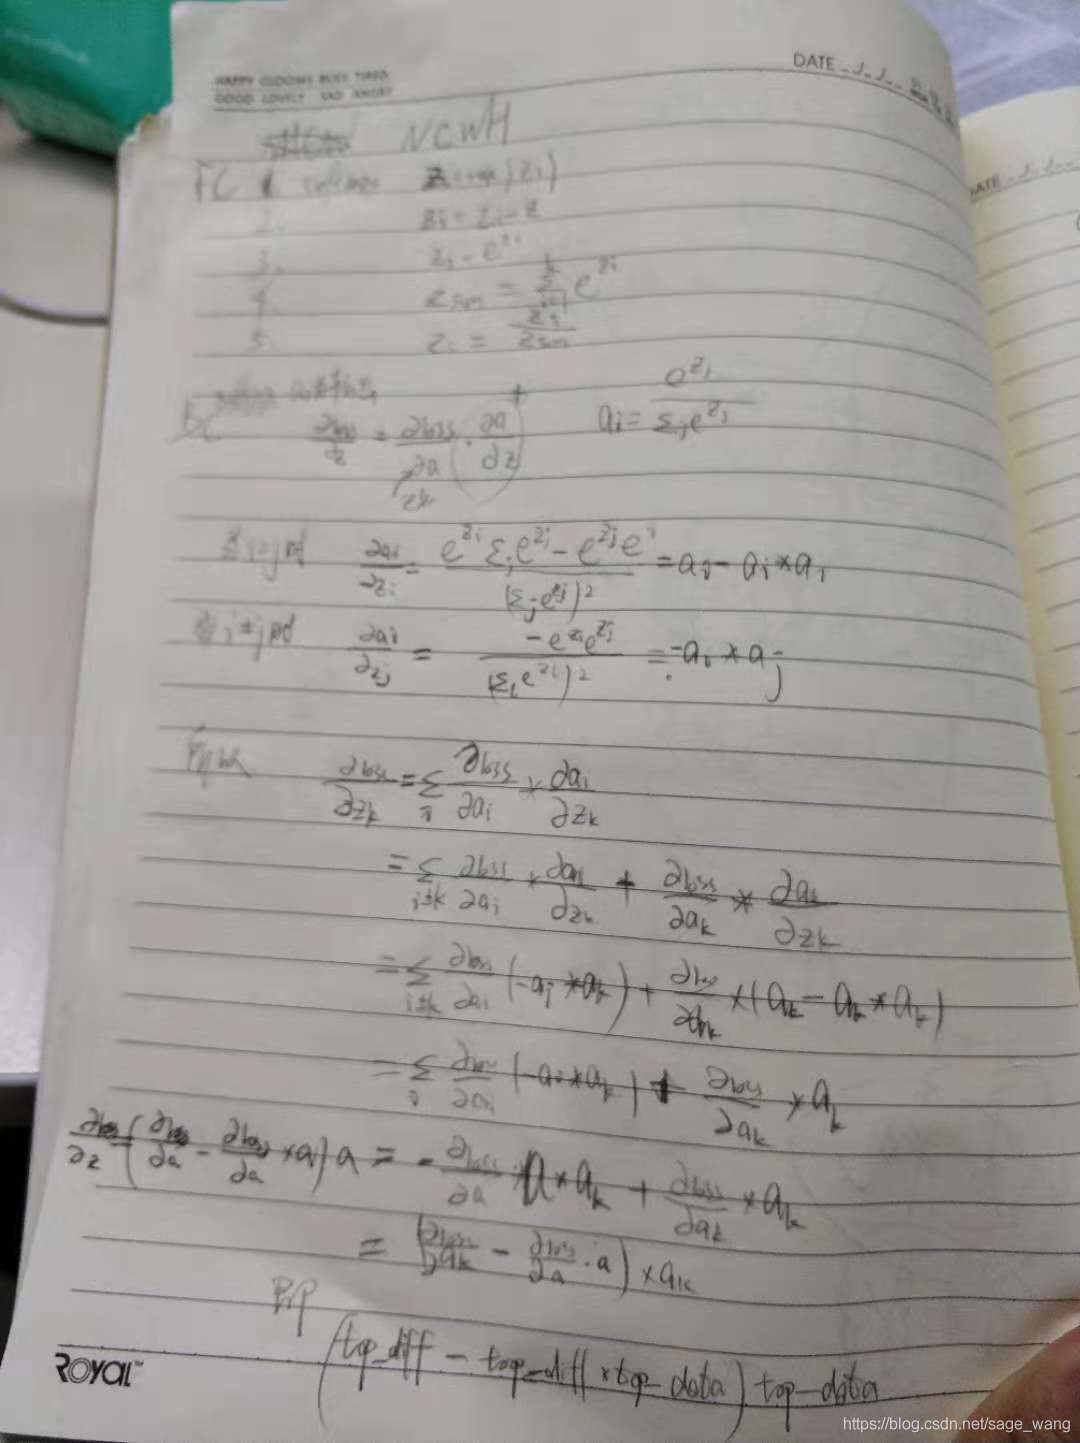 HAPPY GLOOMY BUSY TIRED
GOOD LOVELY SAD ANGRY
DATE
DATE
NCWH
FC 1 z = max(zi)
2. zi = zi - z
3. zi = e^zi
4. zsum = Σ e^zi
5. zi = zi / zsum
∂loss/∂z = ∂loss/∂a · ∂a/∂z ai = e^zi / Σj e^zj
当i=j时 ∂ai/∂zi = (e^zi Σj e^zj - e^zj e^i) / (Σj e^zj)^2 = ai - ai * ai
当i≠j时 ∂ai/∂zj = -e^zi e^zj / (Σi e^zi)^2 = -ai * aj
所以 ∂loss/∂zk = Σi ∂loss/∂ai * ∂ai/∂zk
= Σi≠k ∂loss/∂ai * ∂ai/∂zk + ∂loss/∂ak * ∂ak/∂zk
= Σi≠k ∂loss/∂ai (-ai * ak) + ∂loss/∂ak * (ak - ak * ak)
= Σi ∂loss/∂ai (-ai * ak) + ∂loss/∂ak * ak
∂loss/∂z = (∂loss/∂a - ∂loss/∂a * a) a = - ∂loss/∂a * a * ak + ∂loss/∂ak * ak
= (∂loss/∂ak - ∂loss/∂a · a) * ak
即
(top_diff - top_diff * top_data) top-data
ROYAL
https://blog.csdn.net/sage_wang